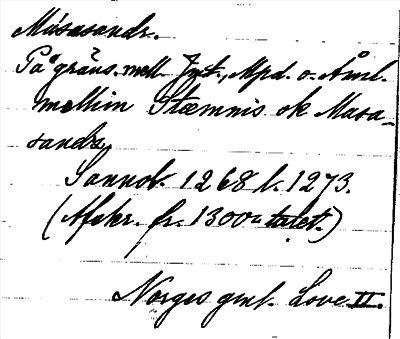 Másasandr.
På gräns. mell. Jmt., Mpd. o. Åml.
mellim Stæmnis ok Masa-
sandz
Sannol. 1268 l. 1273.
(Afskr. fr. 1300-talet.)
Norges gml. Love II.